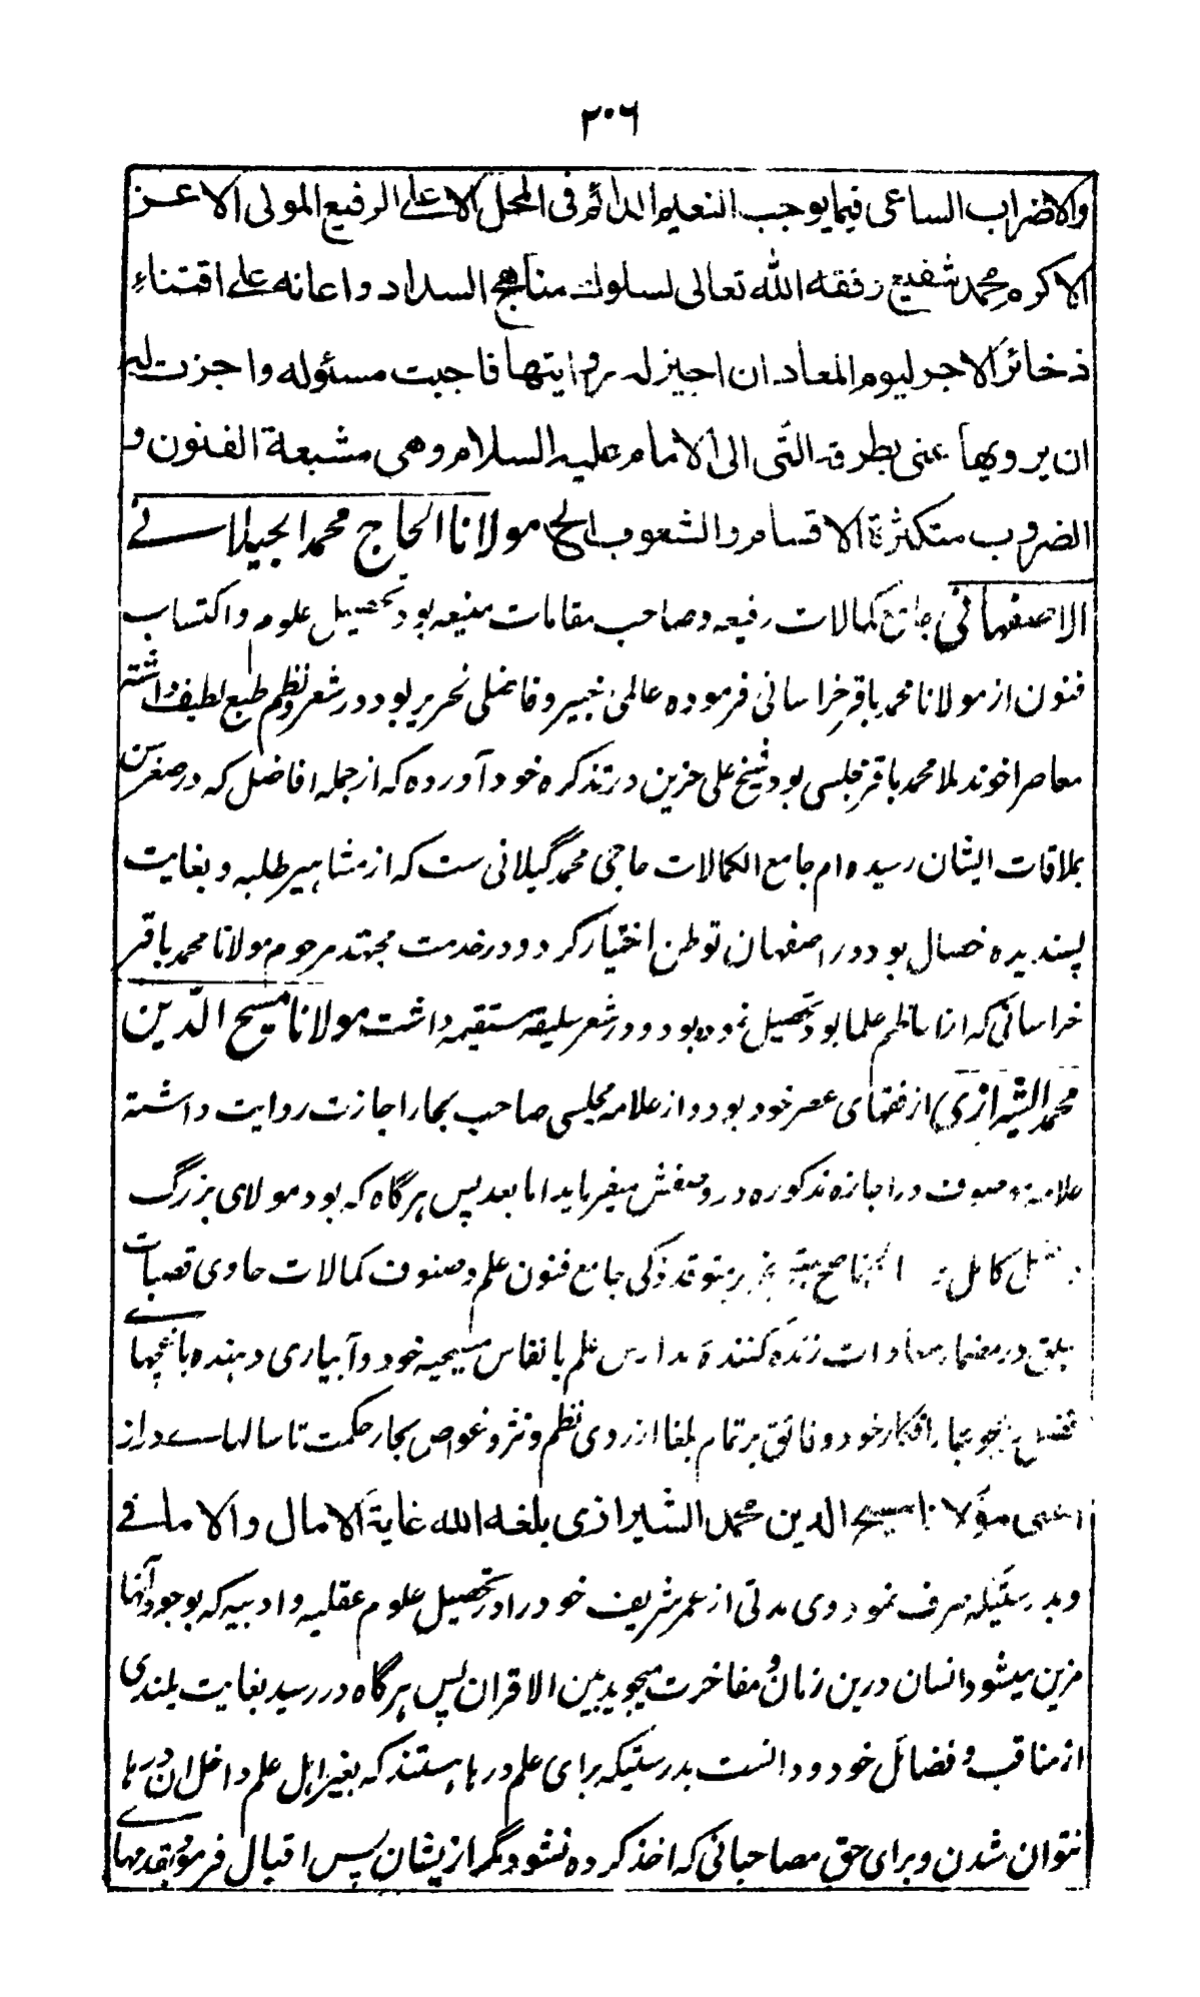 ٢٠٦
والاضراب الساعى فيما يوجب النعيم الدائم فى المحل الاعلى الرفيع المولى الاعز
الاكرم محمد شفيع وفقه الله تعالى لسلوك مناهج السداد واعانه على اقتناء
ذخائر الاجر ليوم المعاد ان اجيز له روايتها فاجبت مسئوله واجزت له
ان يرويها عنى بطرقه التى الى الامام عليه السلام وهى مشبعة الفنون و
الضروب متكثرة الاقسام والشعوب الخ مولانا الحاج محمد الجيلانے
الاصفهانی جامع کمالات رفیعه و صاحب مقامات منیعه بود تحصیل علوم و اکتساب
فنون از مولانا محمد باقر خراسانی فرموده عالمی خبیر و فاضلی نحریر بود در شعر و نظم طبع لطیف داشته
معاصر اخوند ملا محمد باقر مجلسی بود شیخ علی حزین در تذکره خود آورده که از جمله افاضل که در صغر سن
بملاقات ایشان رسیده ام جامع الکمالات حاجی محمد گیلانی ست که از مشاهیر طلبه و بغایت
پسندیده خصال بود در اصفهان توطن اختیار کرد و در خدمت مجتهد مرحوم مولانا محمد باقر
خراسانی که از اعاظم علما بود تحصیل نموده بود و در شعر سلیقه مستقیمه داشت مولانا مسیح الدین
محمد الشیرازی از فقهای عصر خود بود و از علامه مجلسی صاحب بحار اجازت روایت داشته
علامه موصوف در اجازه مذکوره در وصفش میفرماید اما بعد پس هرگاه که بود مولای بزرگ
فاضل کامل متوقد ذکی جامع فنون علم و صنوف کمالات حاوی قصبات
سبق در مضمار سعادات زنده کننده مدارس علم بانفاس مسیحیه خود و آبیاری دهنده باغچهاے
فضل بجویبار افکار خود و فائق بر تمام بلغا از روی نظم و نثر و غواص بحار حکمت تا سالهاے دراز
اعنى مولانا مسيح الدين محمد الشيرازى بلغه الله غاية الامال والامانے
و بدرستیکه صرف نمود وی مدتی از عمر شریف خود را در تحصیل علوم عقلیه و ادبیه که بوجود آنها
مزین میشود انسان درین زمان و مفاخرت میجوید بین الاقران پس هرگاه در رسید بغایت بلندی
از مناقب و فضائل خود و دانست بدرستیکه برای علم درها هستند که بغیر اهل علم داخل ان درها
نتوان شدن و برای حق مصاحبانی که اخذ کرده نشود مگر از یشان پس اقبال فرمود بقدمهاے